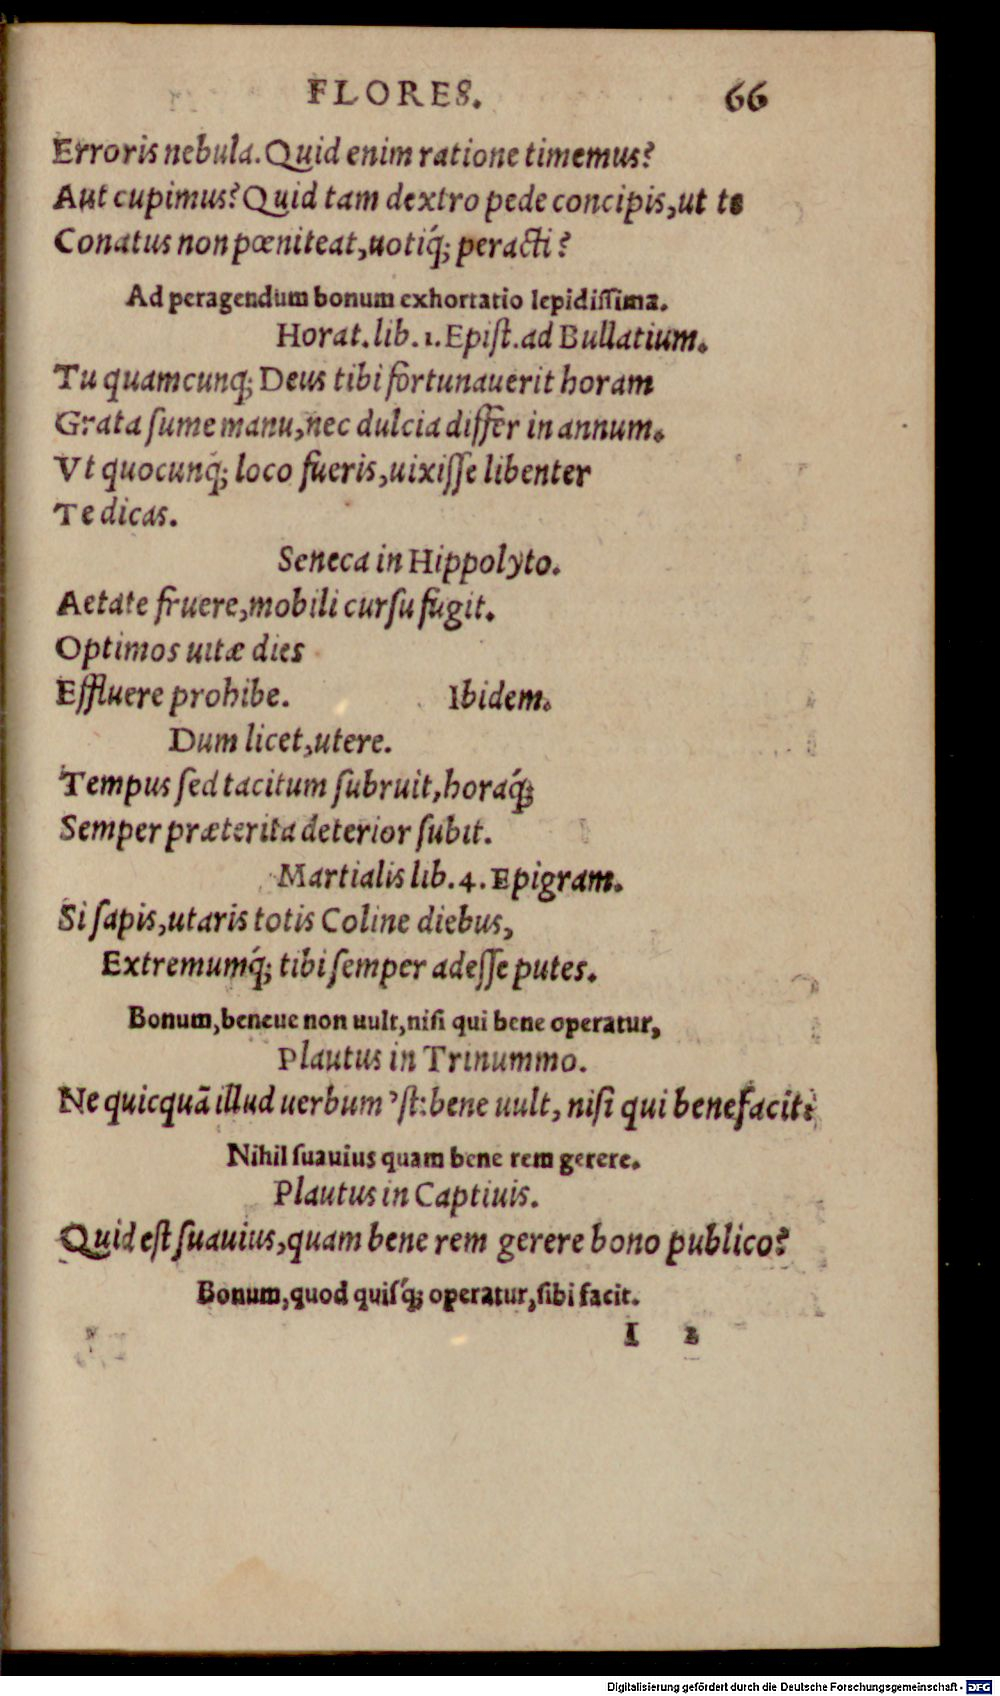 FLORES. 66
Erroris nebula. Quid enim ratione timemus?
Aut cupimus? Quid tam dextro pede concipis, ut te
Conatus non pœniteat, uotiq́; peracti?
Ad peragendum bonum exhortatio lepidiſſima.
Horat. lib. 1. Epiſt. ad Bullatium.
Tu quamcunq; Deus tibi fortunauerit horam
Grata ſume manu, nec dulcia differ in annum.
Vt quocunq́; loco fueris, uixiſſe libenter
Te dicas.
Seneca in Hippolyto.
Aetate fruere, mobili curſu fugit.
Optimos uitæ dies
Effluere prohibe. Ibidem.
Dum licet, utere.
Tempus ſed tacitum ſubruit, horaq́;
Semper præterita deterior ſubit.
Martialis lib. 4. Epigram.
Si ſapis, utaris totis Coline diebus,
Extremumq́; tibi ſemper adeſſe putes.
Bonum, beneue non uult, niſi qui bene operatur,
Plautus in Trinummo.
Ne quicquā illud uerbum ’ſt: bene uult, niſi qui benefacit:
Nihil ſuauius quam bene rem gerere.
Plautus in Captiuis.
Quid eſt ſuauius, quam bene rem gerere bono publico?
Bonum, quod quiſq́; operatur, ſibi facit.
I 2
Digitalisierung gefördert durch die Deutsche Forschungsgemeinschaft - DFG